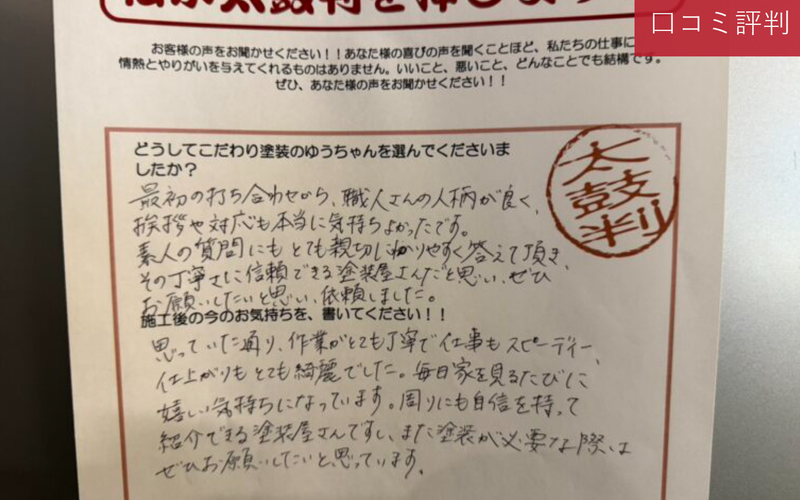 口コミ評判
お客様の声をお聞かせください！！あなた様の喜びの声を聞くことほど、私たちの仕事に
情熱とやりがいを与えてくれるものはありません。いいこと、悪いこと、どんなことでも結構です。
ぜひ、あなた様の声をお聞かせください！！
どうしてこだわり塗装のゆうちゃんを選んでくださいま
したか？
太鼓判
最初の打ち合わせから、職人さんの人柄が良く、
挨拶や対応も本当に気持ちよかったです。
素人の質問にもとても親切にわかりやすく答えて頂き、
その丁寧さに信頼できる塗装屋さんだと思い、ぜひ
お願いしたいと思い、依頼しました。
施工後の今のお気持ちを、書いてください！！
思っていた通り、作業がとても丁寧で仕事もスピーディー、
仕上がりもとても綺麗でした。毎日家を見るたびに
嬉しい気持ちになっています。周りにも自信を持って
紹介できる塗装屋さんですし、また塗装が必要な際は
ぜひお願いしたいと思っています。